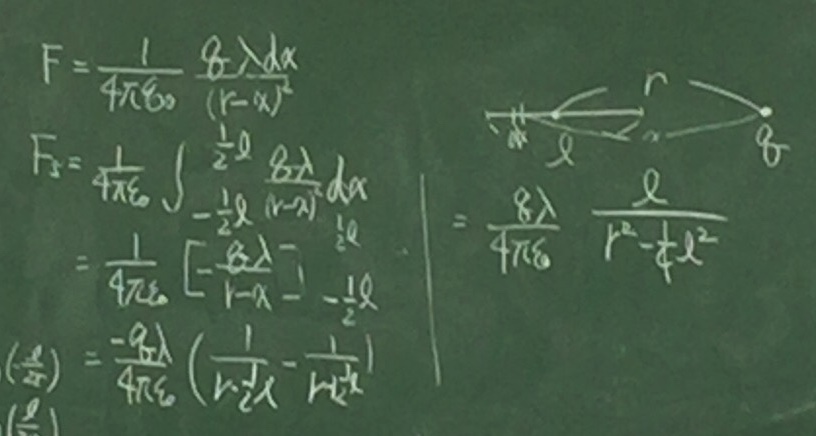 F = \frac{1}{4\pi\varepsilon_0} \frac{q\lambda dx}{(r-x)^2}
F_s = \frac{1}{4\pi\varepsilon_0} \int_{-\frac{1}{2}l}^{\frac{1}{2}l} \frac{q\lambda}{(r-x)^2} dx
= \frac{1}{4\pi\varepsilon_0} \left[ -\frac{q\lambda}{r-x} \right]_{-\frac{1}{2}l}^{\frac{1}{2}l}
= \frac{-q\lambda}{4\pi\varepsilon_0} \left( \frac{1}{r-\frac{1}{2}l} - \frac{1}{r+\frac{1}{2}l} \right)
r
dx l x q
= \frac{q\lambda}{4\pi\varepsilon_0} \frac{l}{r^2-\frac{1}{4}l^2}